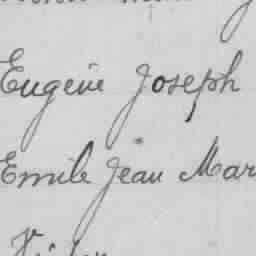 Eugène Joseph
Emile Jean Mar